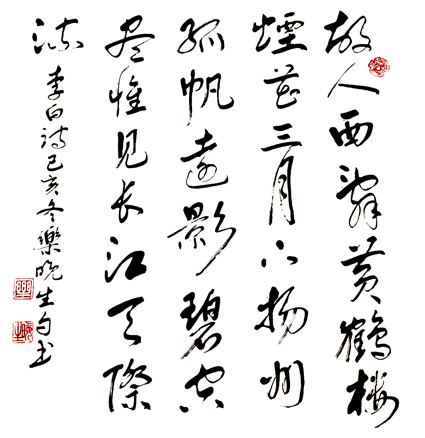 故人西辞黄鹤楼
煙花三月下扬州
孤帆遠影碧空
尽惟见长江天際
流
李白诗己亥冬樂晚生书